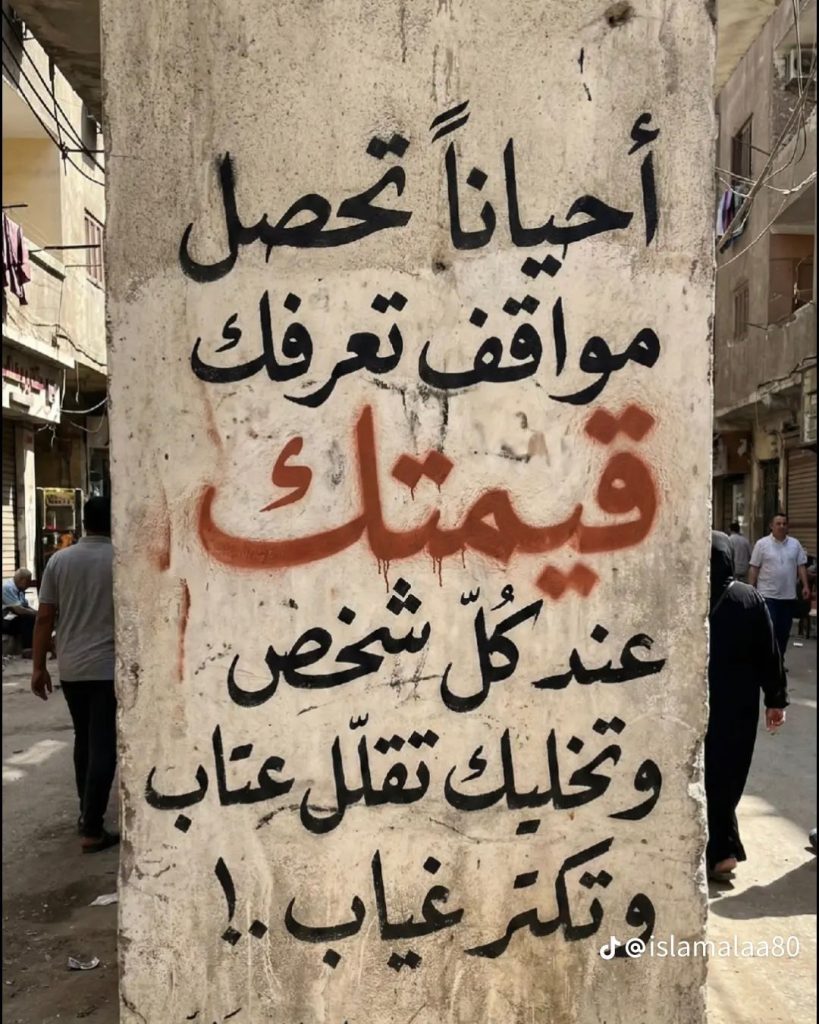 أحياناً تحصل
مواقف تعرفك
قيمتك
عند كُلّ شخص
وتخليك تقلّل عتاب
وتكتر غياب .!
@islamalaa80